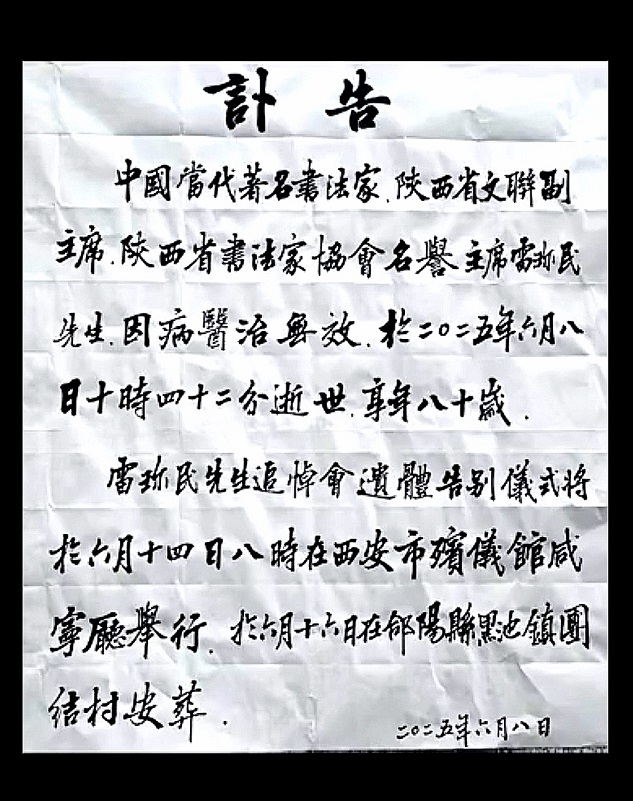 訃告
中國當代著名書法家.陝西省文聯副
主席.陝西省書法家協會名譽主席雷珍民
先生.因病醫治無效.於二〇二五年六月八
日十時四十二分逝世.享年八十歲.
雷珍民先生追悼會遺體告别儀式將
於六月十四日八時在西安市殯儀館咸
寧廳舉行.於六月十六日在郃陽縣黑池鎮團
结村安葬.
二〇二五年六月八日